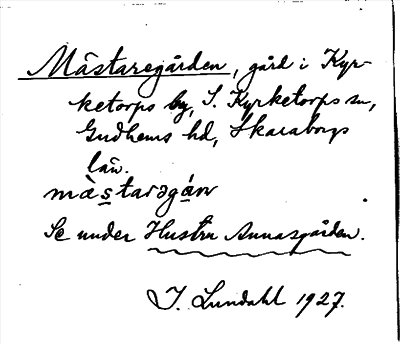 Mästaregården, gård i Kyr-
ketorps by, S. Kyrketorps sn,
Gudhems hd, Skaraborgs
län.
màstarəgán
Se under Hustru Annasgården.
I. Lundahl 1927.